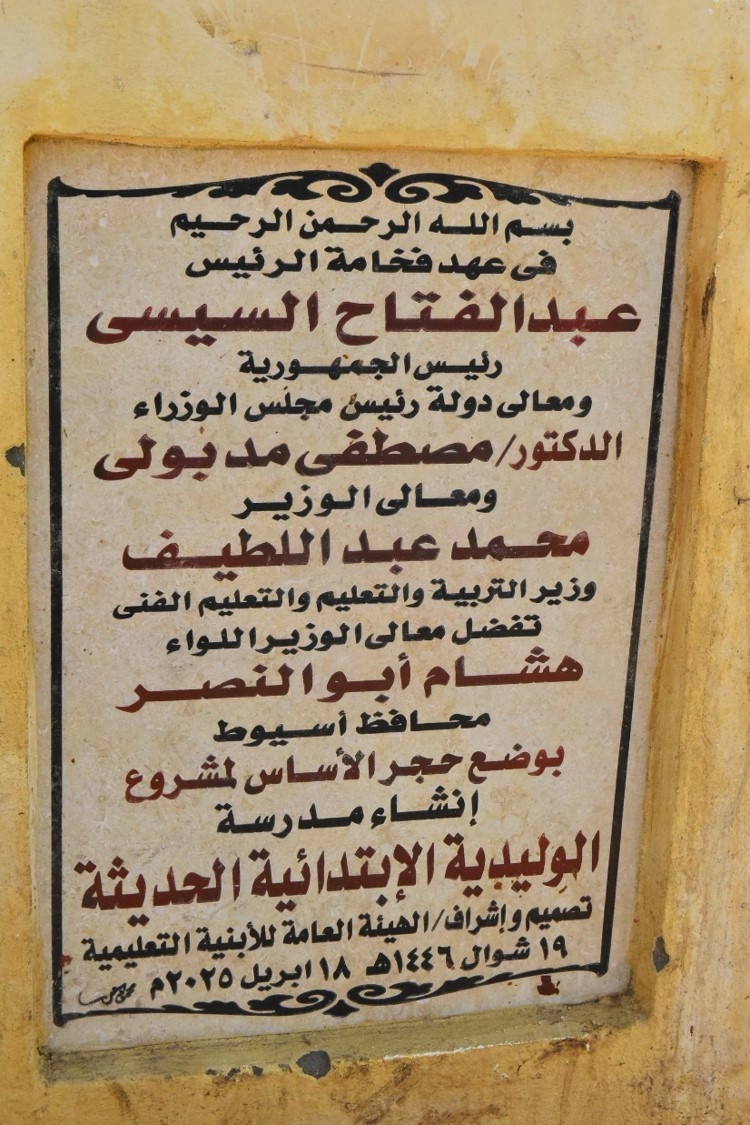 بسم الله الرحمن الرحيم
فى عهد فخامة الرئيس
عبدالفتاح السيسى
رئيس الجمهورية
ومعالى دولة رئيس مجلس الوزراء
الدكتور/مصطفى مدبولى
ومعالى الوزير
محمد عبد اللطيف
وزير التربية والتعليم والتعليم الفنى
تفضل معالى الوزير اللواء
هشام أبو النصر
محافظ أسيوط
بوضع حجر الأساس لمشروع
إنشاء مدرسة
الوليدية الإبتدائية الحديثة
تصميم وإشراف/الهيئة العامة للأبنية التعليمية
١٩ شوال ١٤٤٦هـ ١٨ ابريل ٢٠٢٥م